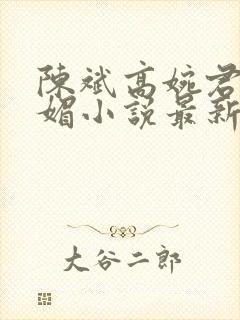 陳斌高婉君
媚小説最新
大谷二郎